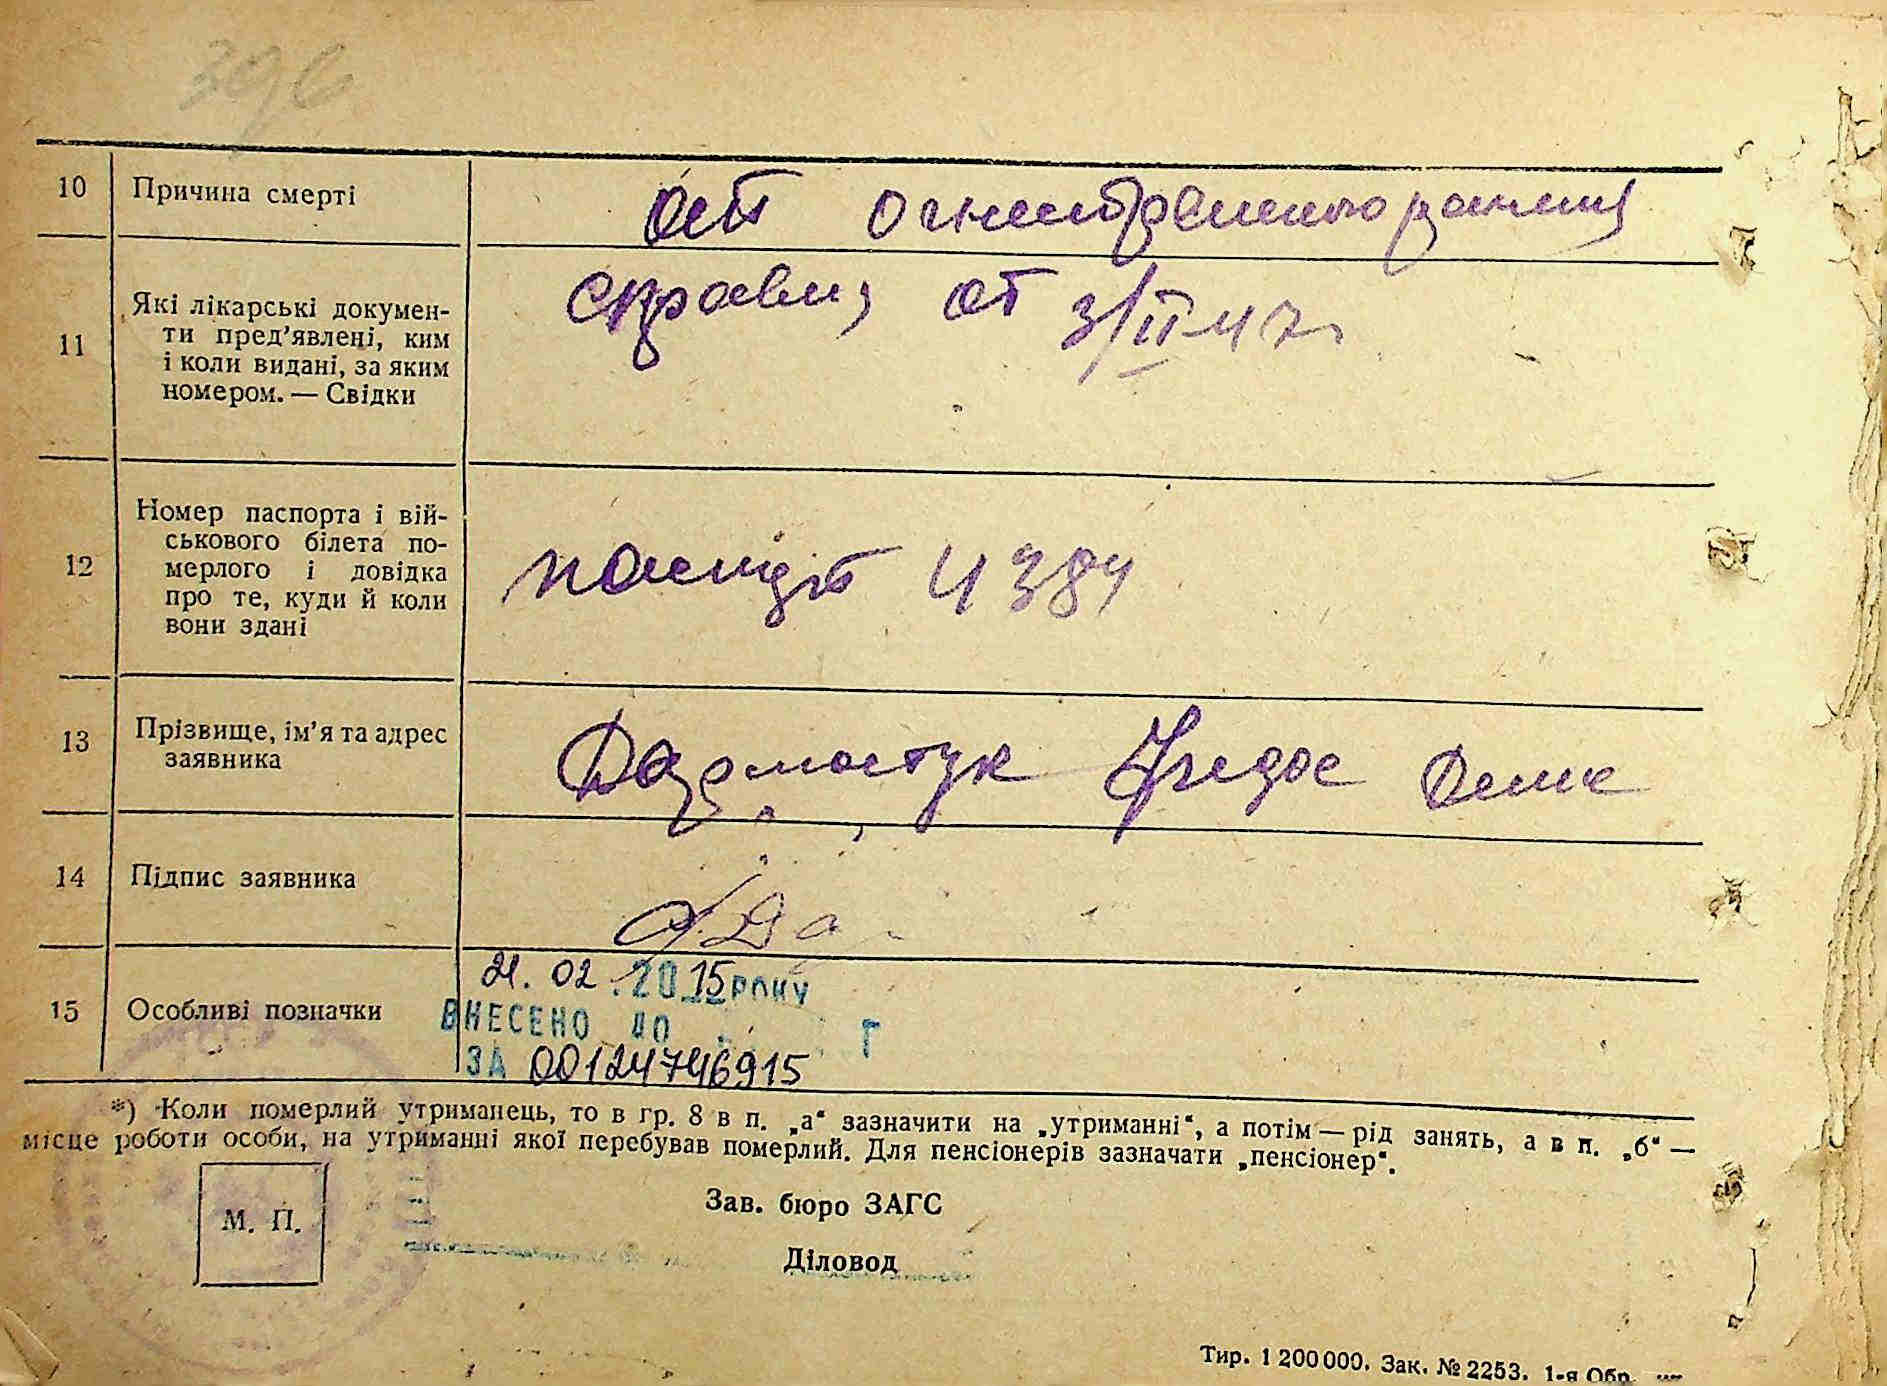 396
10 Причина смерті
от огнестрельного ранения
11 Які лікарські докумен-
ти пред'явлені, ким
і коли видані, за яким
номером. — Свідки
справка от 3/II-47г
12 Номер паспорта і вій-
ськового білета по-
мерлого і довідка
про те, куди й коли
вони здані
паспорт
13 Прізвище, ім'я та адрес
заявника
14 Підпис заявника
15 Особливі позначки
21.02.2015 РОКУ
ВНЕСЕНО ДО Г
ЗА 00124746915
*) Коли померлий утриманець, то в гр. 8 в п. „а“ зазначити на „утриманні“, а потім — рід занять, а в п. „б“ —
місце роботи особи, на утриманні якої перебував померлий. Для пенсіонерів зазначати „пенсіонер“.
М. П.
Зав. бюро ЗАГС
Діловод
Тир. 1 200 000. Зак. № 2253. 1-я Обр.